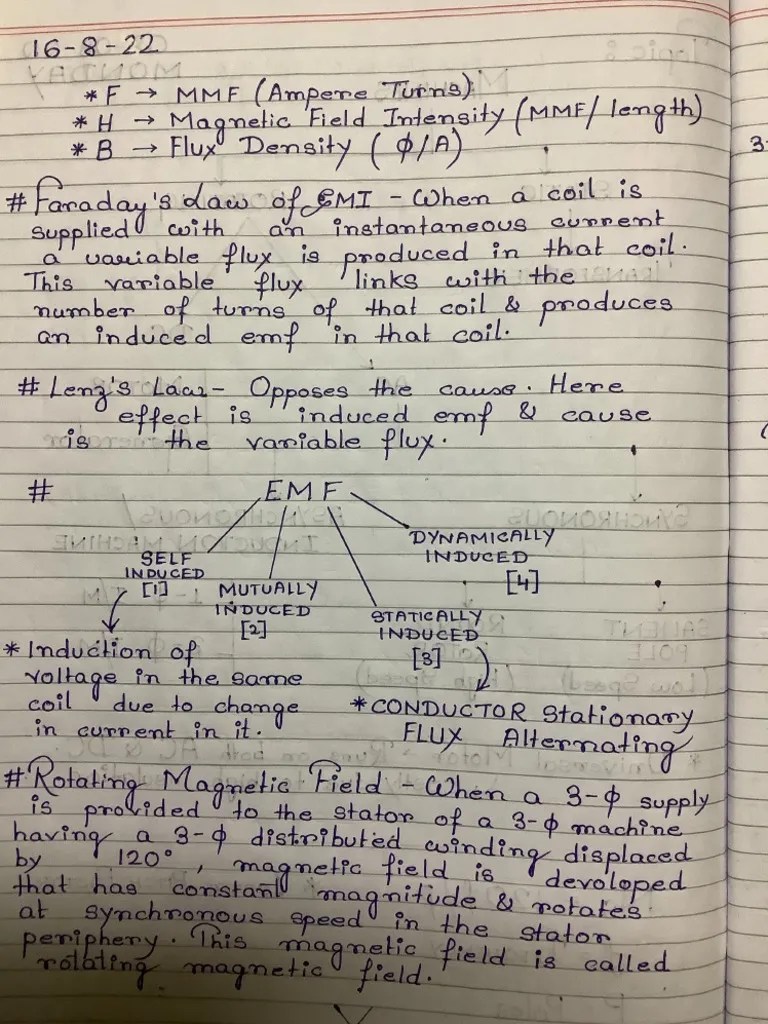 16-8-22
* F → MMF (Ampere Turns)
* H → Magnetic Field Intensity (MMF/length)
* B → Flux Density (ϕ/A)
# Faraday's Law of EMI - When a coil is
supplied with an instantaneous current
a variable flux is produced in that coil.
This variable flux links with the
number of turns of that coil & produces
an induced emf in that coil.
# Lenz's Law - Opposes the cause. Here
effect is induced emf & cause
is the variable flux.
# EMF
DYNAMICALLY
INDUCED
[4]
SELF
INDUCED
[1]
MUTUALLY
INDUCED
[2]
STATICALLY
INDUCED
[3]
* Induction of
voltage in the same
coil due to change
in current in it.
* CONDUCTOR Stationary
FLUX Alternating
# Rotating Magnetic Field - When a 3-ϕ supply
is provided to the stator of a 3-ϕ machine
having a 3-ϕ distributed winding displaced
by 120°, magnetic field is devoloped
that has constant magnitude & rotates
at synchronous speed in the stator
periphery. This magnetic field is called
rotating magnetic field.